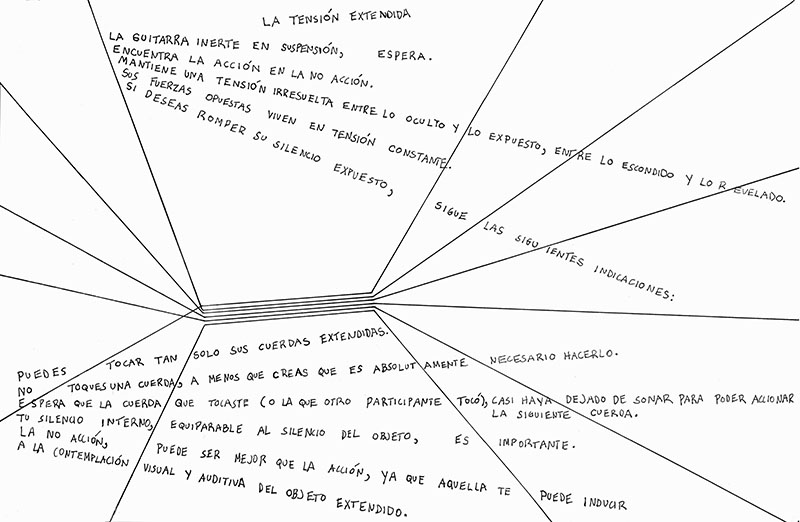 LA TENSIÓN EXTENDIDA
LA GUITARRA INERTE EN SUSPENSIÓN, ESPERA.
ENCUENTRA LA ACCIÓN EN LA NO ACCIÓN.
MANTIENE UNA TENSIÓN IRRESUELTA ENTRE LO OCULTO Y LO EXPUESTO, ENTRE LO ESCONDIDO Y LO REVELADO.
SUS FUERZAS OPUESTAS VIVEN EN TENSIÓN CONSTANTE.
SI DESEAS ROMPER SU SILENCIO EXPUESTO, SIGUE LAS SIGUIENTES INDICACIONES:
PUEDES TOCAR TAN SOLO SUS CUERDAS EXTENDIDAS.
NO TOQUES UNA CUERDA, A MENOS QUE CREAS QUE ES ABSOLUTAMENTE NECESARIO HACERLO.
ESPERA QUE LA CUERDA QUE TOCASTE (O LA QUE OTRO PARTICIPANTE TOCÓ), CASI HAYA DEJADO DE SONAR PARA PODER ACCIONAR
LA SIGUIENTE CUERDA.
TU SILENCIO INTERNO, EQUIPARABLE AL SILENCIO DEL OBJETO, ES IMPORTANTE.
LA NO ACCIÓN, PUEDE SER MEJOR QUE LA ACCIÓN, YA QUE AQUELLA TE PUEDE INDUCIR
A LA CONTEMPLACIÓN VISUAL Y AUDITIVA DEL OBJETO EXTENDIDO.